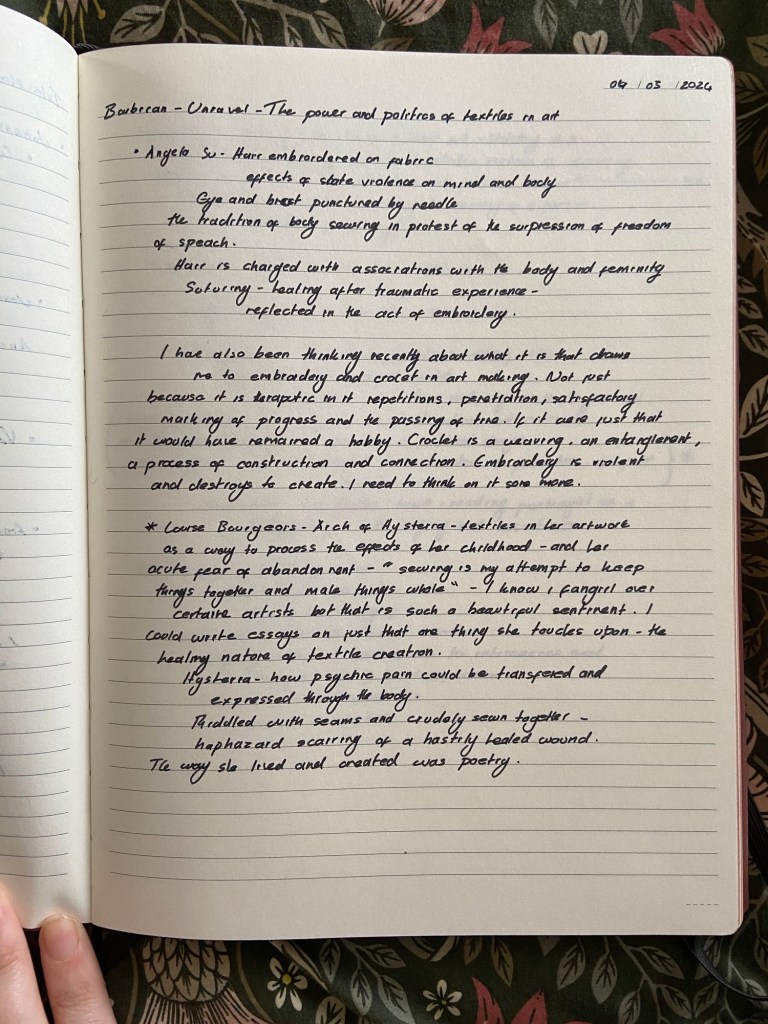 06 / 03 / 2024
Barbican - Unravel - The power and politics of textiles in art
• Angela Su - Hair embroidered on fabric
effects of state violence on mind and body
Eye and breast punctured by needle
the tradition of body sewing in protest of the surpression of freedom
of speach.
Hair is charged with associations with the body and feminity
Suturing - healing after traumatic experience -
reflected in the act of embroidery.
I have also been thinking recently about what it is that draws
me to embroidery and crocet in art making. Not just
because it is theraputic in it repetitions, penetration, satisfactory
marking of progress and the passing of time. If it were just that
it would have remained a hobby. Crochet is a weaving, an entanglement,
a process of construction and connection. Embroidery is violent
and destroys to create. I need to think on it some more.
* Louise Bourgeois - Arch of Hysteria - textiles in her artwork
as a way to process the effects of her childhood - and her
acute fear of abandonment - "sewing is my attempt to keep
things together and make things whole" - I know I fangirl over
certaine artists but that is such a beautiful sentiment. I
could write essays on just that one thing she touches upon - the
healing nature of textile creation.
Hysteria - how psychic pain could be transfered and
expressed through the body.
Riddled with seams and crudely sewn together -
haphazard scarring of a hastily healed wound.
The way she lived and created was poetry.